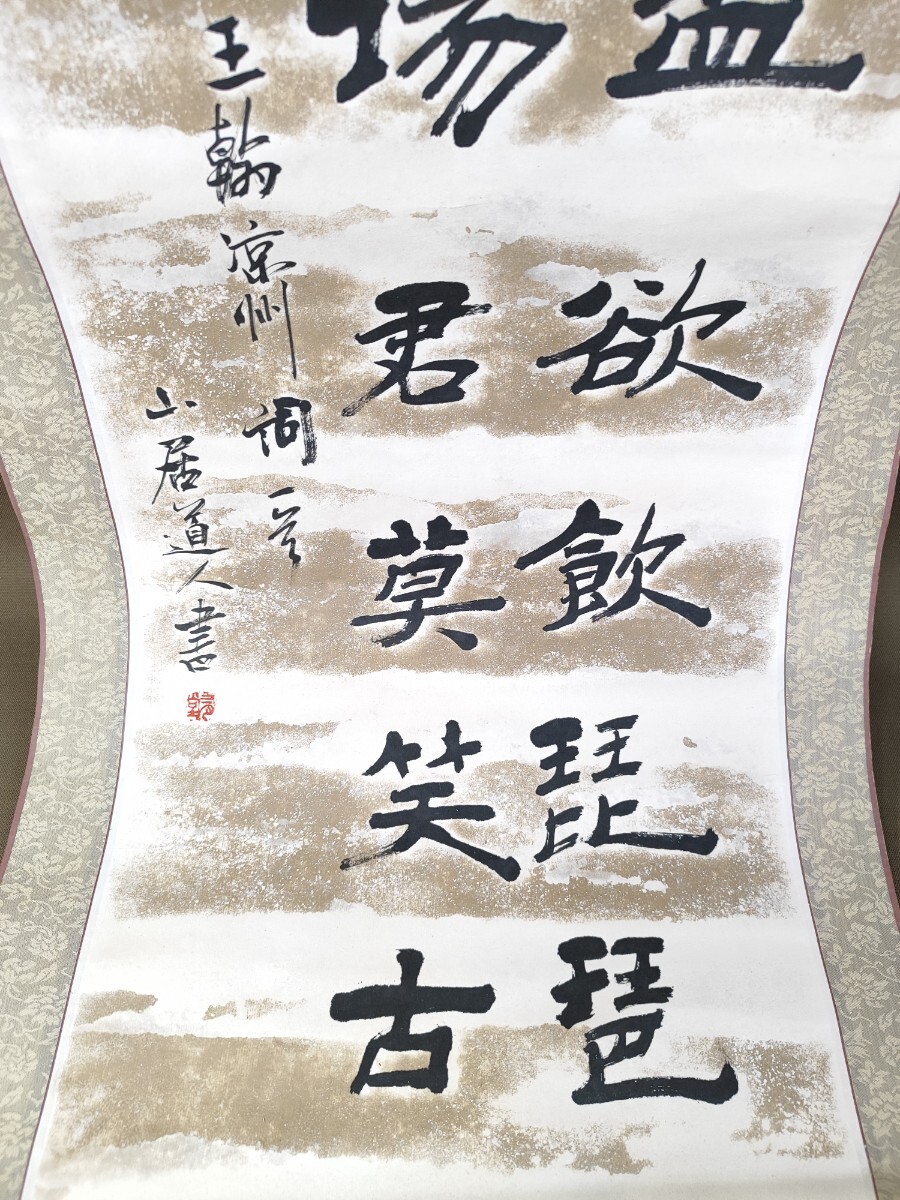 盃欲飲琵琶
場君莫笑古
王翰涼州詞一首
山居道人書